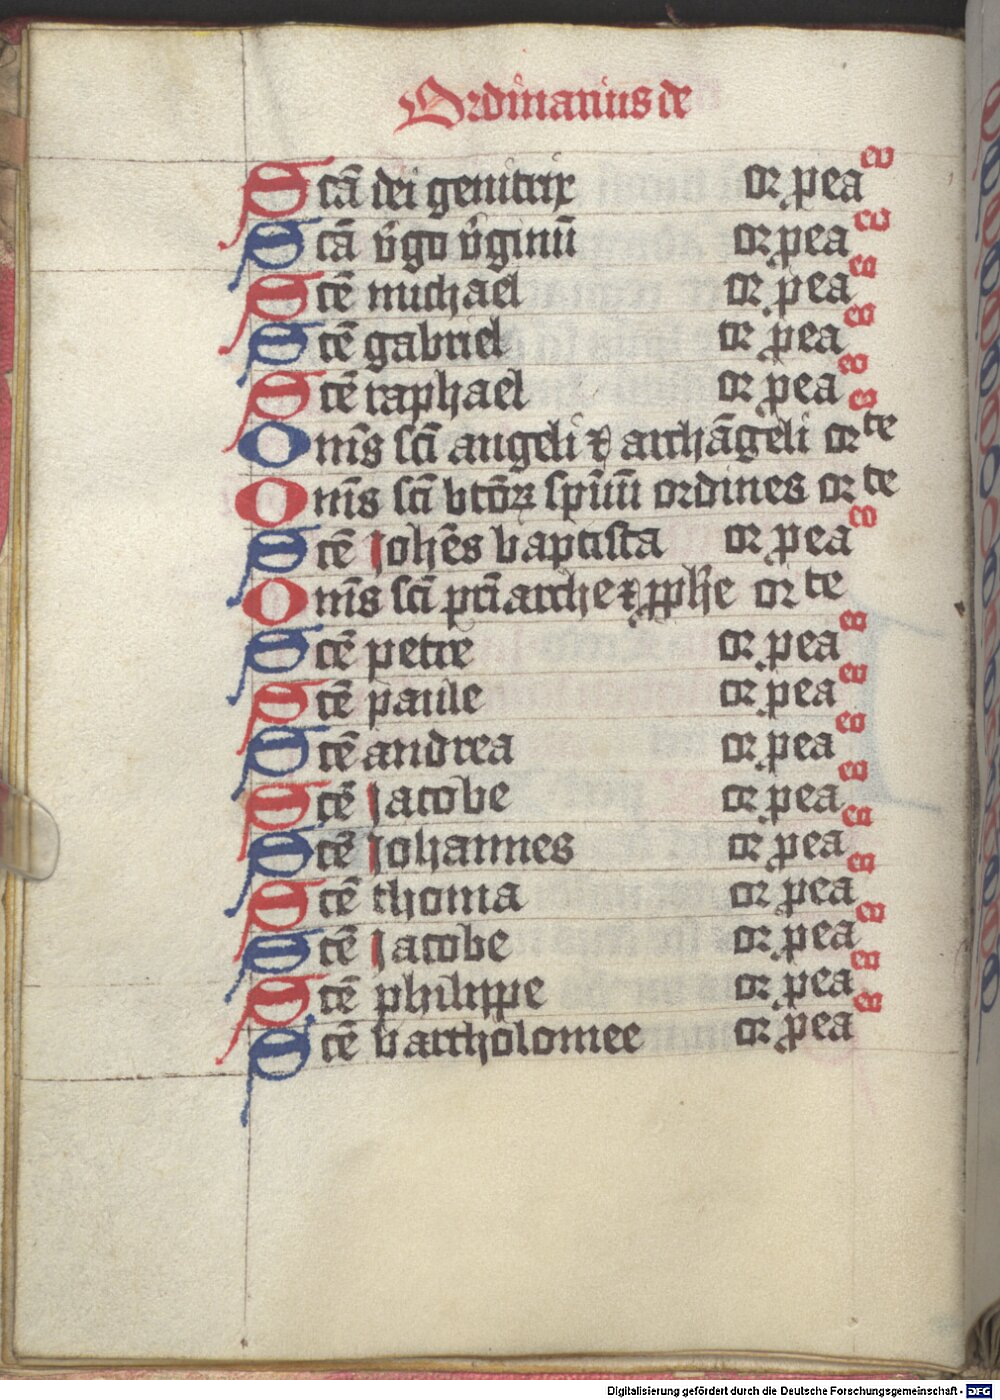 Ordinarius de
Scā dei genitrix or p ea eo
Scā v̄go v̄ginū or p ea eo
Scē michael or p ea eo
Scē gabriel or p ea eo
Scē raphael or p ea eo
Om̄s sc̄i angeli ⁊ archāgeli or te
Om̄s sc̄i btōꝝ sp̄uū ordines or te
Scē Joh̄es baptista or p ea eo
Om̄s sc̄i pr̄iarche ⁊ ꝓph̄e or te
Scē petre or p ea eo
Scē paule or p ea eo
Scē andrea or p ea eo
Scē Jacobe or p ea eo
Scē Johannes or p ea eo
Scē thoma or p ea eo
Scē Jacobe or p ea eo
Scē philippe or p ea eo
Scē bartholomee or p ea eo
Digitalisierung gefördert durch die Deutsche Forschungsgemeinschaft - DFG